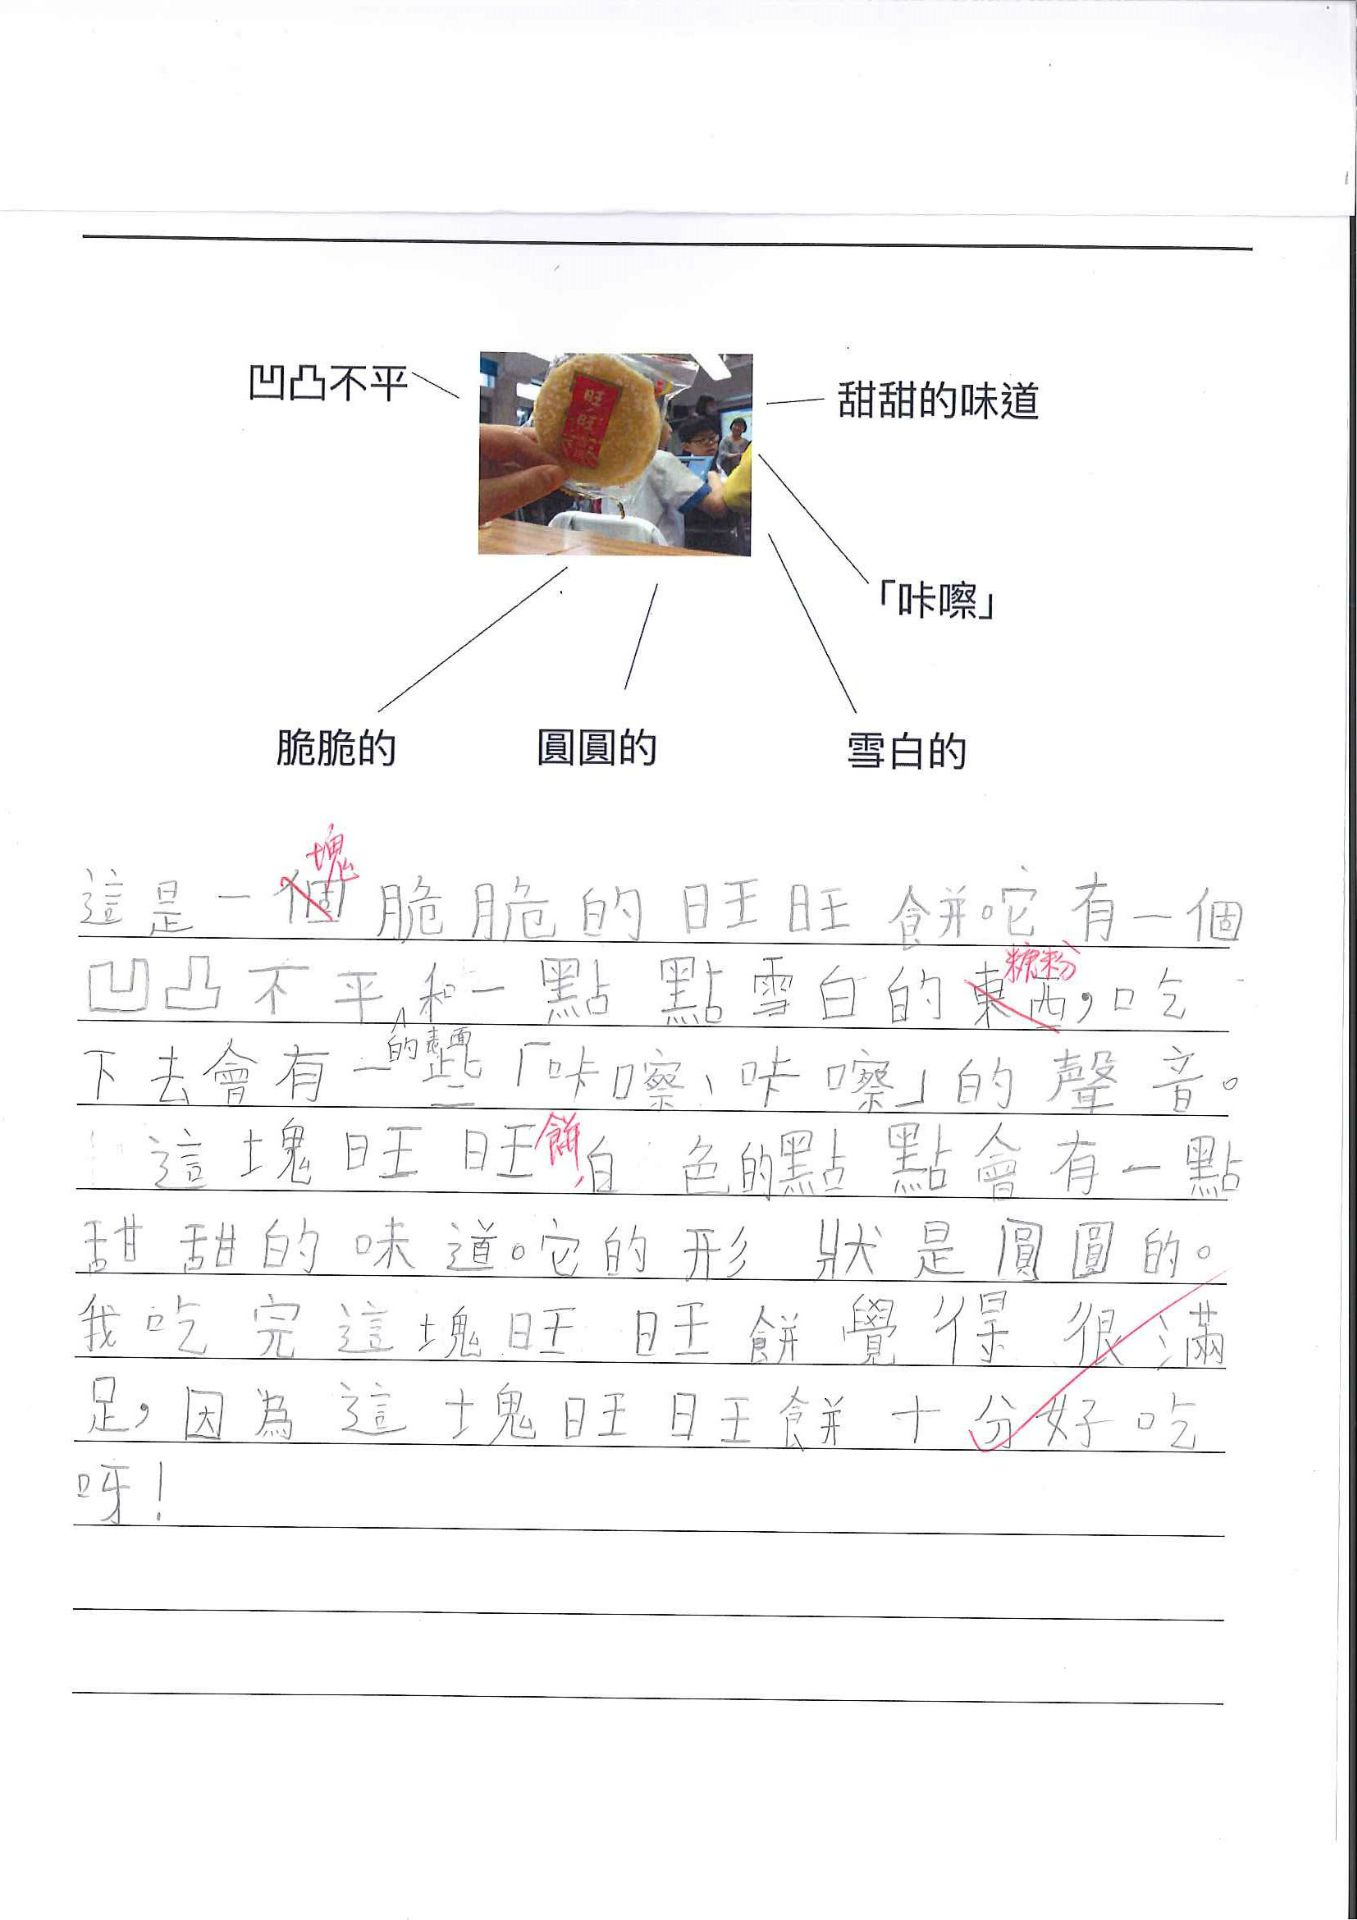 凹凸不平
甜甜的味道
旺旺
「咔嚓」
脆脆的
圓圓的
雪白的
塊
這是一個脆脆的旺旺餅它有一個
糖粉
凹凸不平和一點點雪白的東西,口吃
的表面
下去會有一些「咔嚓、咔嚓」的聲音。
餅,
這塊旺旺白色的點點會有一點
甜甜的味道。它的形狀是圓圓的。
我吃完這塊旺旺餅覺得很滿
足,因為這塊旺旺餅十分好吃
呀!